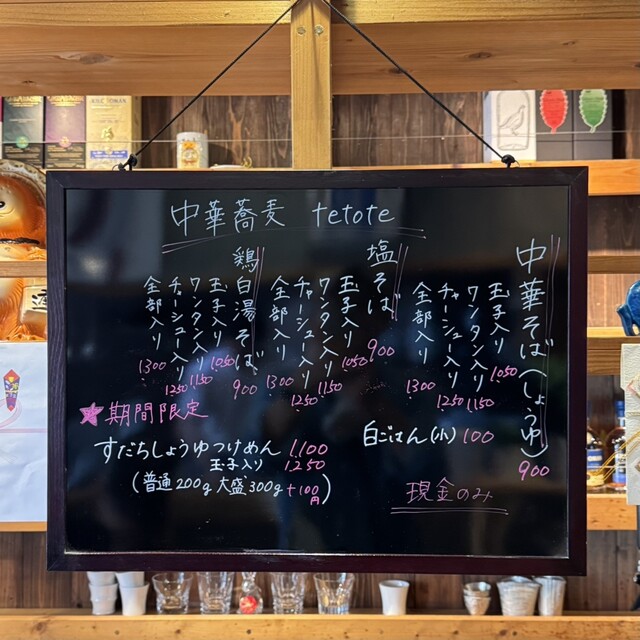 中華蕎麦 tetote
中華そば(しょうゆ) 900
玉子入り 1050
ワンタン入り 1150
チャーシュー入り 1250
全部入り 1300
塩そば 900
玉子入り 1050
ワンタン入り 1150
チャーシュー入り 1250
全部入り 1300
鶏白湯そば 900
玉子入り 1050
ワンタン入り 1150
チャーシュー入り 1250
全部入り 1300
★期間限定
すだちしょうゆつけめん 1,100
玉子入り 1250
(普通200g 大盛300g +100円)
白ごはん(小) 100
現金のみ